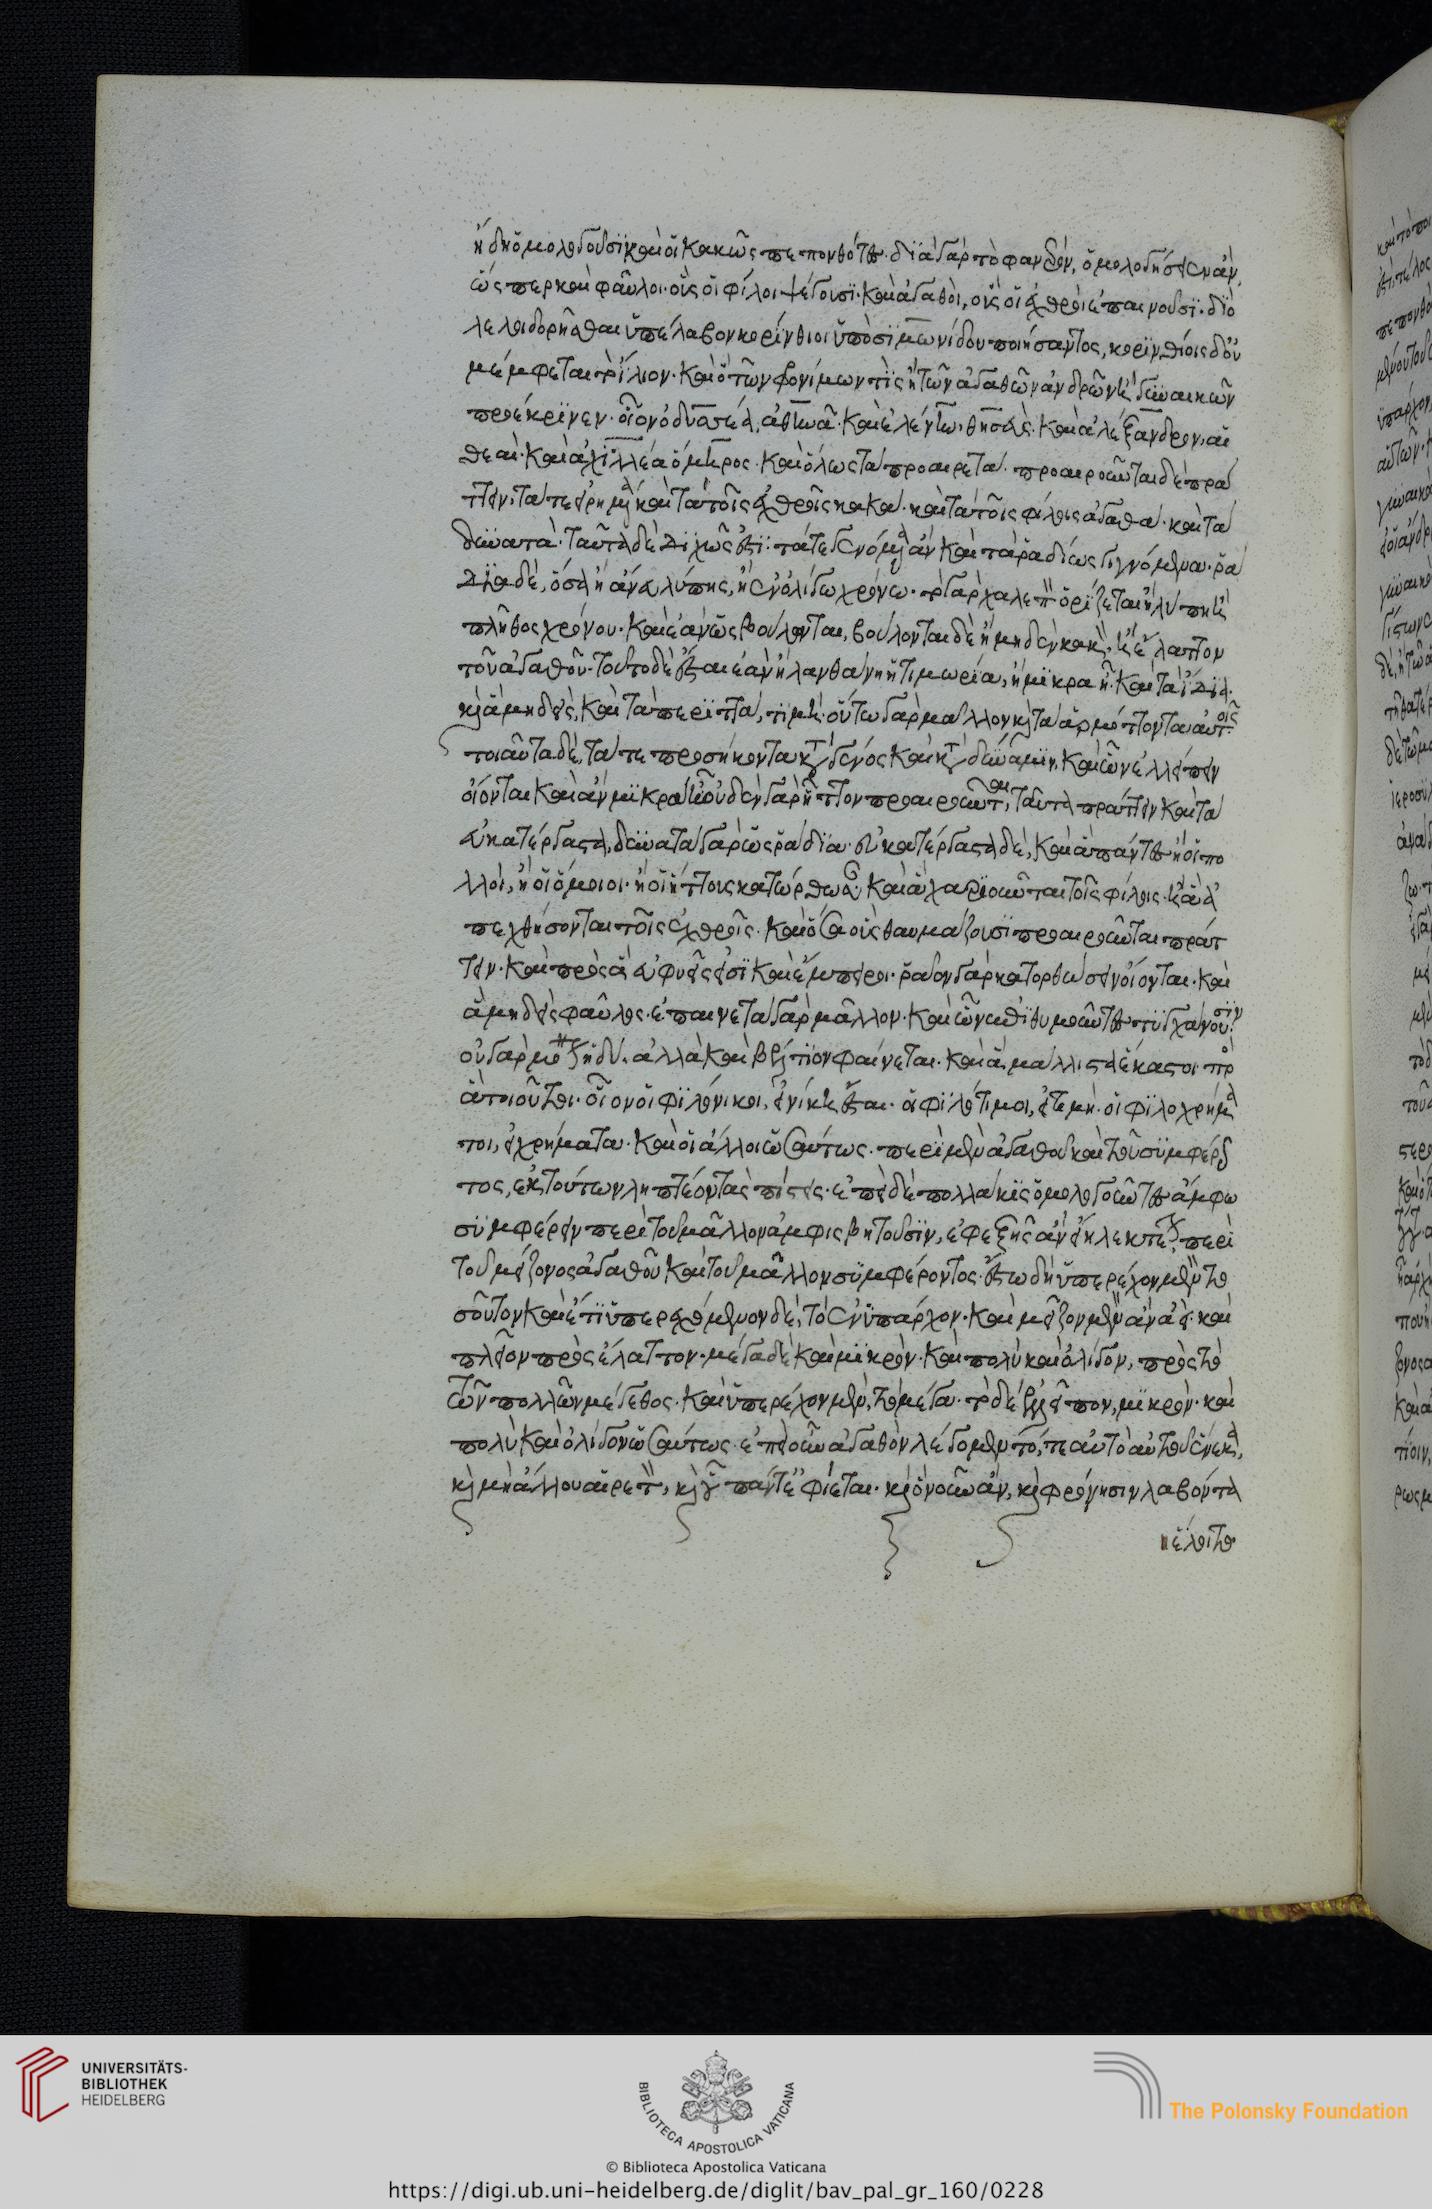 ἤδη ὁμολογοῦσι καὶ οἱ κακῶς πεπονθότες· διὰ γὰρ τὸ φανερὸν, ὁμολογήσειεν ἂν,
ὥσπερ καὶ φαῦλοι· οὓς οἱ φίλοι ψέγουσι· καὶ ἀγαθοὶ, οὓς οἱ ἐχθροὶ ἐπαινοῦσι· διὸ
λελοιδορῆσθαι ὑπέλαβον κορίνθιοι ὑπὸ σιμωνίδου ποιήσαντος, κορινθίοις δ' οὐ
μέμφεται τὸ ἴλιον· καὶ ὃ τῶν φρονίμων τὶς ἢ τῶν ἀγαθῶν ἀνδρῶν ἢ γυναικῶν
προέκρινεν· οἷον ὀδυσσέα, ἀθηνᾶ· καὶ ἑλένην, θησεὺς· καὶ ἀλέξανδρον, αἱ
θεαί· καὶ ἀχιλλέα ὅμηρος· καὶ ὅλως τὰ προαιρετά· προαιροῦνται δὲ πρά
ττειν, τά τε εἰρημένα καὶ τὰ τοῖς ἐχθροῖς κακά· καὶ τὰ τοῖς φίλοις ἀγαθά· καὶ τὰ
δυνατὰ· ταῦτα δὲ διχῶς ἐστι· τά τε γενόμενα ἂν καὶ τὰ ῥαδίως γιγνόμενα· ῥά
δια δὲ, ὅσα ἢ ἄνευ λύπης, ἢ ἐν ὀλίγω χρόνω· τὸ γὰρ χαλεπὸν ὁρίζεται ἢ λύπη ἢ
πλῆθος χρόνου· καὶ ἐὰν ὡς βούλονται, βούλονται δὲ ἢ μηδὲν κακὸν, ἢ ἔλαττον
τοῦ ἀγαθοῦ· τοῦτο δὲ ἔσται ἐὰν ἢ λανθάνη ἡ τιμωρία, ἢ μικρὰ ἦ· καὶ τὰ ἴδια·
καὶ ἃ μηδεὶς, καὶ τὰ περιττὰ, τιμὴ· οὕτω γὰρ μᾶλλον καὶ τὰ ἁρμόττοντα αὐτοῖς
τοιαῦτα δὲ, τά τε προσήκοντα κατὰ γένος καὶ κατὰ δύναμιν, καὶ ὧν ἐλλείπειν
οἴονται κἂν μικρὰ ἦ· οὐδὲν γὰρ ἧττον προαιροῦνται, ταῦτα πράττειν καὶ τὰ
εὐκατέργαστα, δυνατὰ γὰρ ὡς ῥάδια· εὐκατέργαστα δὲ, καὶ ἃ πάντες ἢ οἱ πο
λλοὶ, ἢ οἱ ὅμοιοι· ἢ οἱ ἥττους κατώρθωσαν καὶ ἃ χαριοῦνται τοῖς φίλοις· ἢ ἃ ἀ
πεχθήσονται τοῖς ἐχθροῖς· καὶ ὅσα οὓς θαυμάζουσι προαιροῦνται πράτ
τειν· καὶ πρὸς ἃ εὐφυεῖς εἰσι καὶ ἔμπειροι· ῥᾶον γὰρ κατορθώσειν οἴονται· καὶ
ἃ μηδεὶς φαῦλος· ἐπαινετὰ γὰρ μᾶλλον· καὶ ὧν ἐπιθυμοῦντες τυγχάνουσιν
οὐ γὰρ μόνον ἡδὺ, ἀλλὰ καὶ βέλτιον φαίνεται· καὶ ἃ μάλλιστα ἕκαστοι πρὸς
ἃ τοιοῦτοι· οἷον οἱ φιλόνικοι, εἰ νίκη ἔσται· οἱ φιλότιμοι, εἰ τιμὴ· οἱ φιλοχρήμα
τοι, εἰ χρήματα· καὶ οἱ ἄλλοι ὡσαύτως· περὶ μὲν ἀγαθοῦ καὶ τοῦ συμφέρον
τος, ἐκ τούτων ληπτέον τὰς πίστεις· ἐπεὶ δὲ πολλάκις ὁμολογοῦντες ἄμφω
συμφέρειν περὶ τοῦ μᾶλλον ἀμφισβητοῦσιν, ἐφεξῆς ἂν εἴη λεκτέον, περὶ
τοῦ μείζονος ἀγαθοῦ καὶ τοῦ μᾶλλον συμφέροντος· ἔστω δὴ ὑπερέχον μὲν τὸ
τοσοῦτον καὶ ἔτι ὑπερεχόμενον δὲ, τὸ ἐνυπάρχον· καὶ μεῖζον μὲν ἀεὶ καὶ
πλεῖον πρὸς ἔλαττον· μέγα δὲ καὶ μικρὸν· καὶ πολὺ καὶ ὀλίγον, πρὸς τὸ
τῶν πολλῶν μέγεθος· καὶ ὑπερέχον μὲν, τὸ μέγα· τὸ δὲ ἐλλεῖπον, μικρὸν· καὶ
πολὺ καὶ ὀλίγον ὡσαύτως· ἐπεὶ οὖν ἀγαθὸν λέγομεν τό, τε αὐτὸ αὑτοῦ ἕνεκα,
καὶ μὴ ἄλλου αἱρετὸν, καὶ οὗ πάντ' ἐφίεται· καὶ ὃ νοῦν ἂν, καὶ φρόνησιν λαβόντα
ἕλοιτο
UNIVERSITÄTS-
BIBLIOTHEK
HEIDELBERG
BIBLIOTECA APOSTOLICA VATICANA
© Biblioteca Apostolica Vaticana
The Polonsky Foundation
https://digi.ub.uni-heidelberg.de/diglit/bav_pal_gr_160/0228